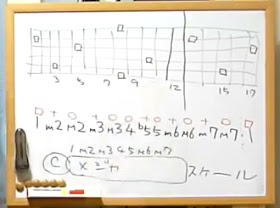 3 5 7 9 12 15 17
1 m2 M2 m3 M3 4 b5 5 m6 M6 m7 M7 1
1 m2 M3 4 5 m6 M7
C メジャー スケール